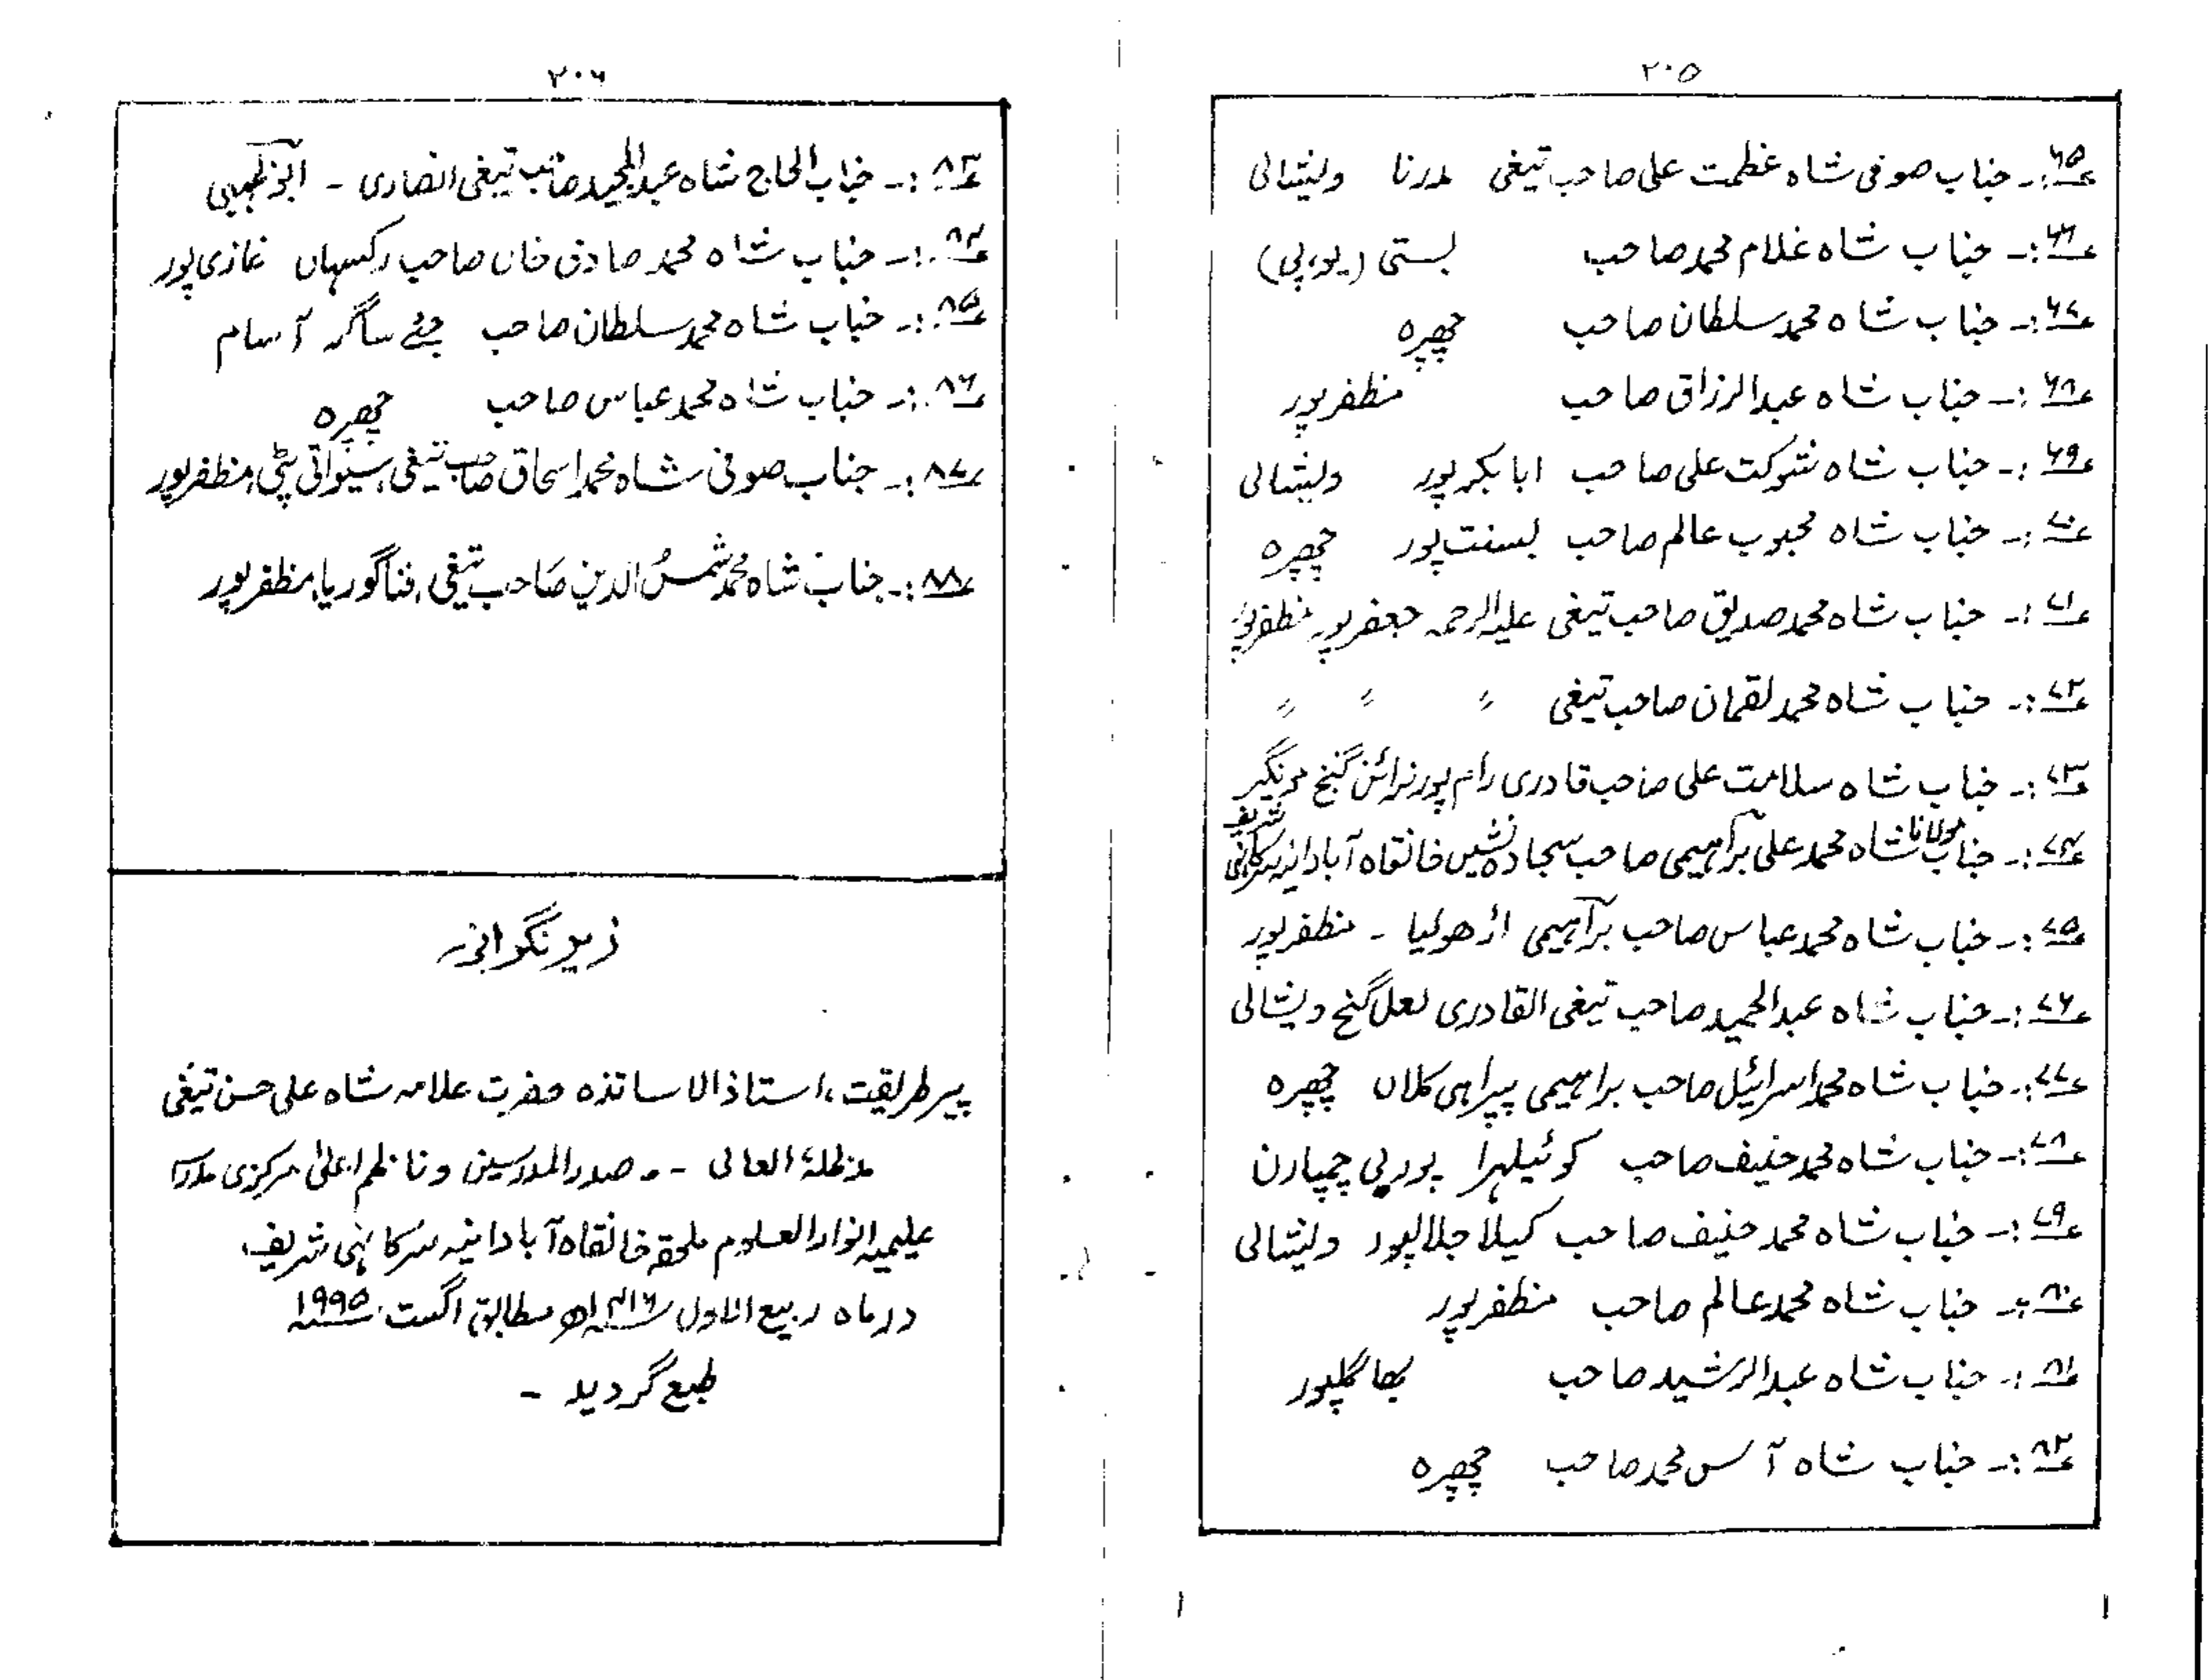 ۲۰۵
۶۵؎:۔ جناب صوفی شاہ عظمت علی صاحب تیغی مدرنا ویشالی
۶۶؎:۔ جناب شاہ غلام محمد صاحب بستی (یو،پی)
۶۷؎:۔ جناب شاہ محمد سلطان صاحب چھپرہ
۶۸؎:۔ جناب شاہ عبدالرزاق صاحب مظفرپور
۶۹؎:۔ جناب شاہ شوکت علی صاحب ابابکرپور ویشالی
۷۰؎:۔ جناب شاہ محبوب عالم صاحب بسنت پور چھپرہ
۷۱؎:۔ جناب شاہ محمد صدیق صاحب تیغی علیہ الرحمہ جعفرپور مظفرپور
۷۲؎:۔ جناب شاہ محمد لقمان صاحب تیغی 〃 〃 〃
۷۳؎:۔ جناب شاہ سلامت علی صاحب قادری رام پور نرائن گنج مونگیر
۷۴؎:۔ جناب مولانا شاہ محمد علی براہیمی صاحب سجادہ نشیں خانقاہ آبادانیہ سرکانہی شریف
۷۵؎:۔ جناب شاہ محمد عباس صاحب براہیمی ازھولیا ۔ مظفرپور
۷۶؎:۔ جناب شاہ عبدالحمید صاحب تیغی القادری لعل گنج ویشالی
۷۷؎:۔ جناب شاہ محمد اسرائیل صاحب براہیمی پپراہی کلاں چھپرہ
۷۸؎:۔ جناب شاہ محمد حنیف صاحب کوئیلہرا پوربی چمپارن
۷۹؎:۔ جناب شاہ محمد حنیف صاحب کیلا جلالپور ویشالی
۸۰؎:۔ جناب شاہ محمد عالم صاحب مظفرپور
۸۱؎:۔ جناب شاہ عبدالرشید صاحب بھاگلپور
۸۲؎:۔ جناب شاہ آس محمد صاحب چھپرہ
۲۰۶
۸۳؎:۔ جناب الحاج شاہ عبدالمجید صاحب تیغی انصاری ۔ ابوظہبی
۸۴؎:۔ جناب شاہ محمد صادق خاں صاحب رکسہاں غازی پور
۸۵؎:۔ جناب شاہ محمد سلطان صاحب جئے ساگر آسام
۸۶؎:۔ جناب شاہ محمد عباس صاحب چھپرہ
۸۷؎:۔ جناب صوفی شاہ محمد اسحاق صاحب تیغی، سیوانی پٹی، مظفرپور
۸۸؎:۔ جناب شاہ محمد شمس الدین صاحب تیغی، مظفرپور
زیر نگرانی
پیر طریقت، استاذ الاساتذہ حضرت علامہ شاہ علی حسن تیغی
مدظلہٗ العالی ۔۔ صدرالمدرسین و ناظم اعلیٰ مرکزی مدرسہ
علیمیہ انوارالعلوم ملحقہ خانقاہ آبادانیہ سرکانہی شریف
در ماہ ربیع الاول ۱۴۱۶ھ مطابق اگست ۱۹۹۵ء
طبع گردید ۔